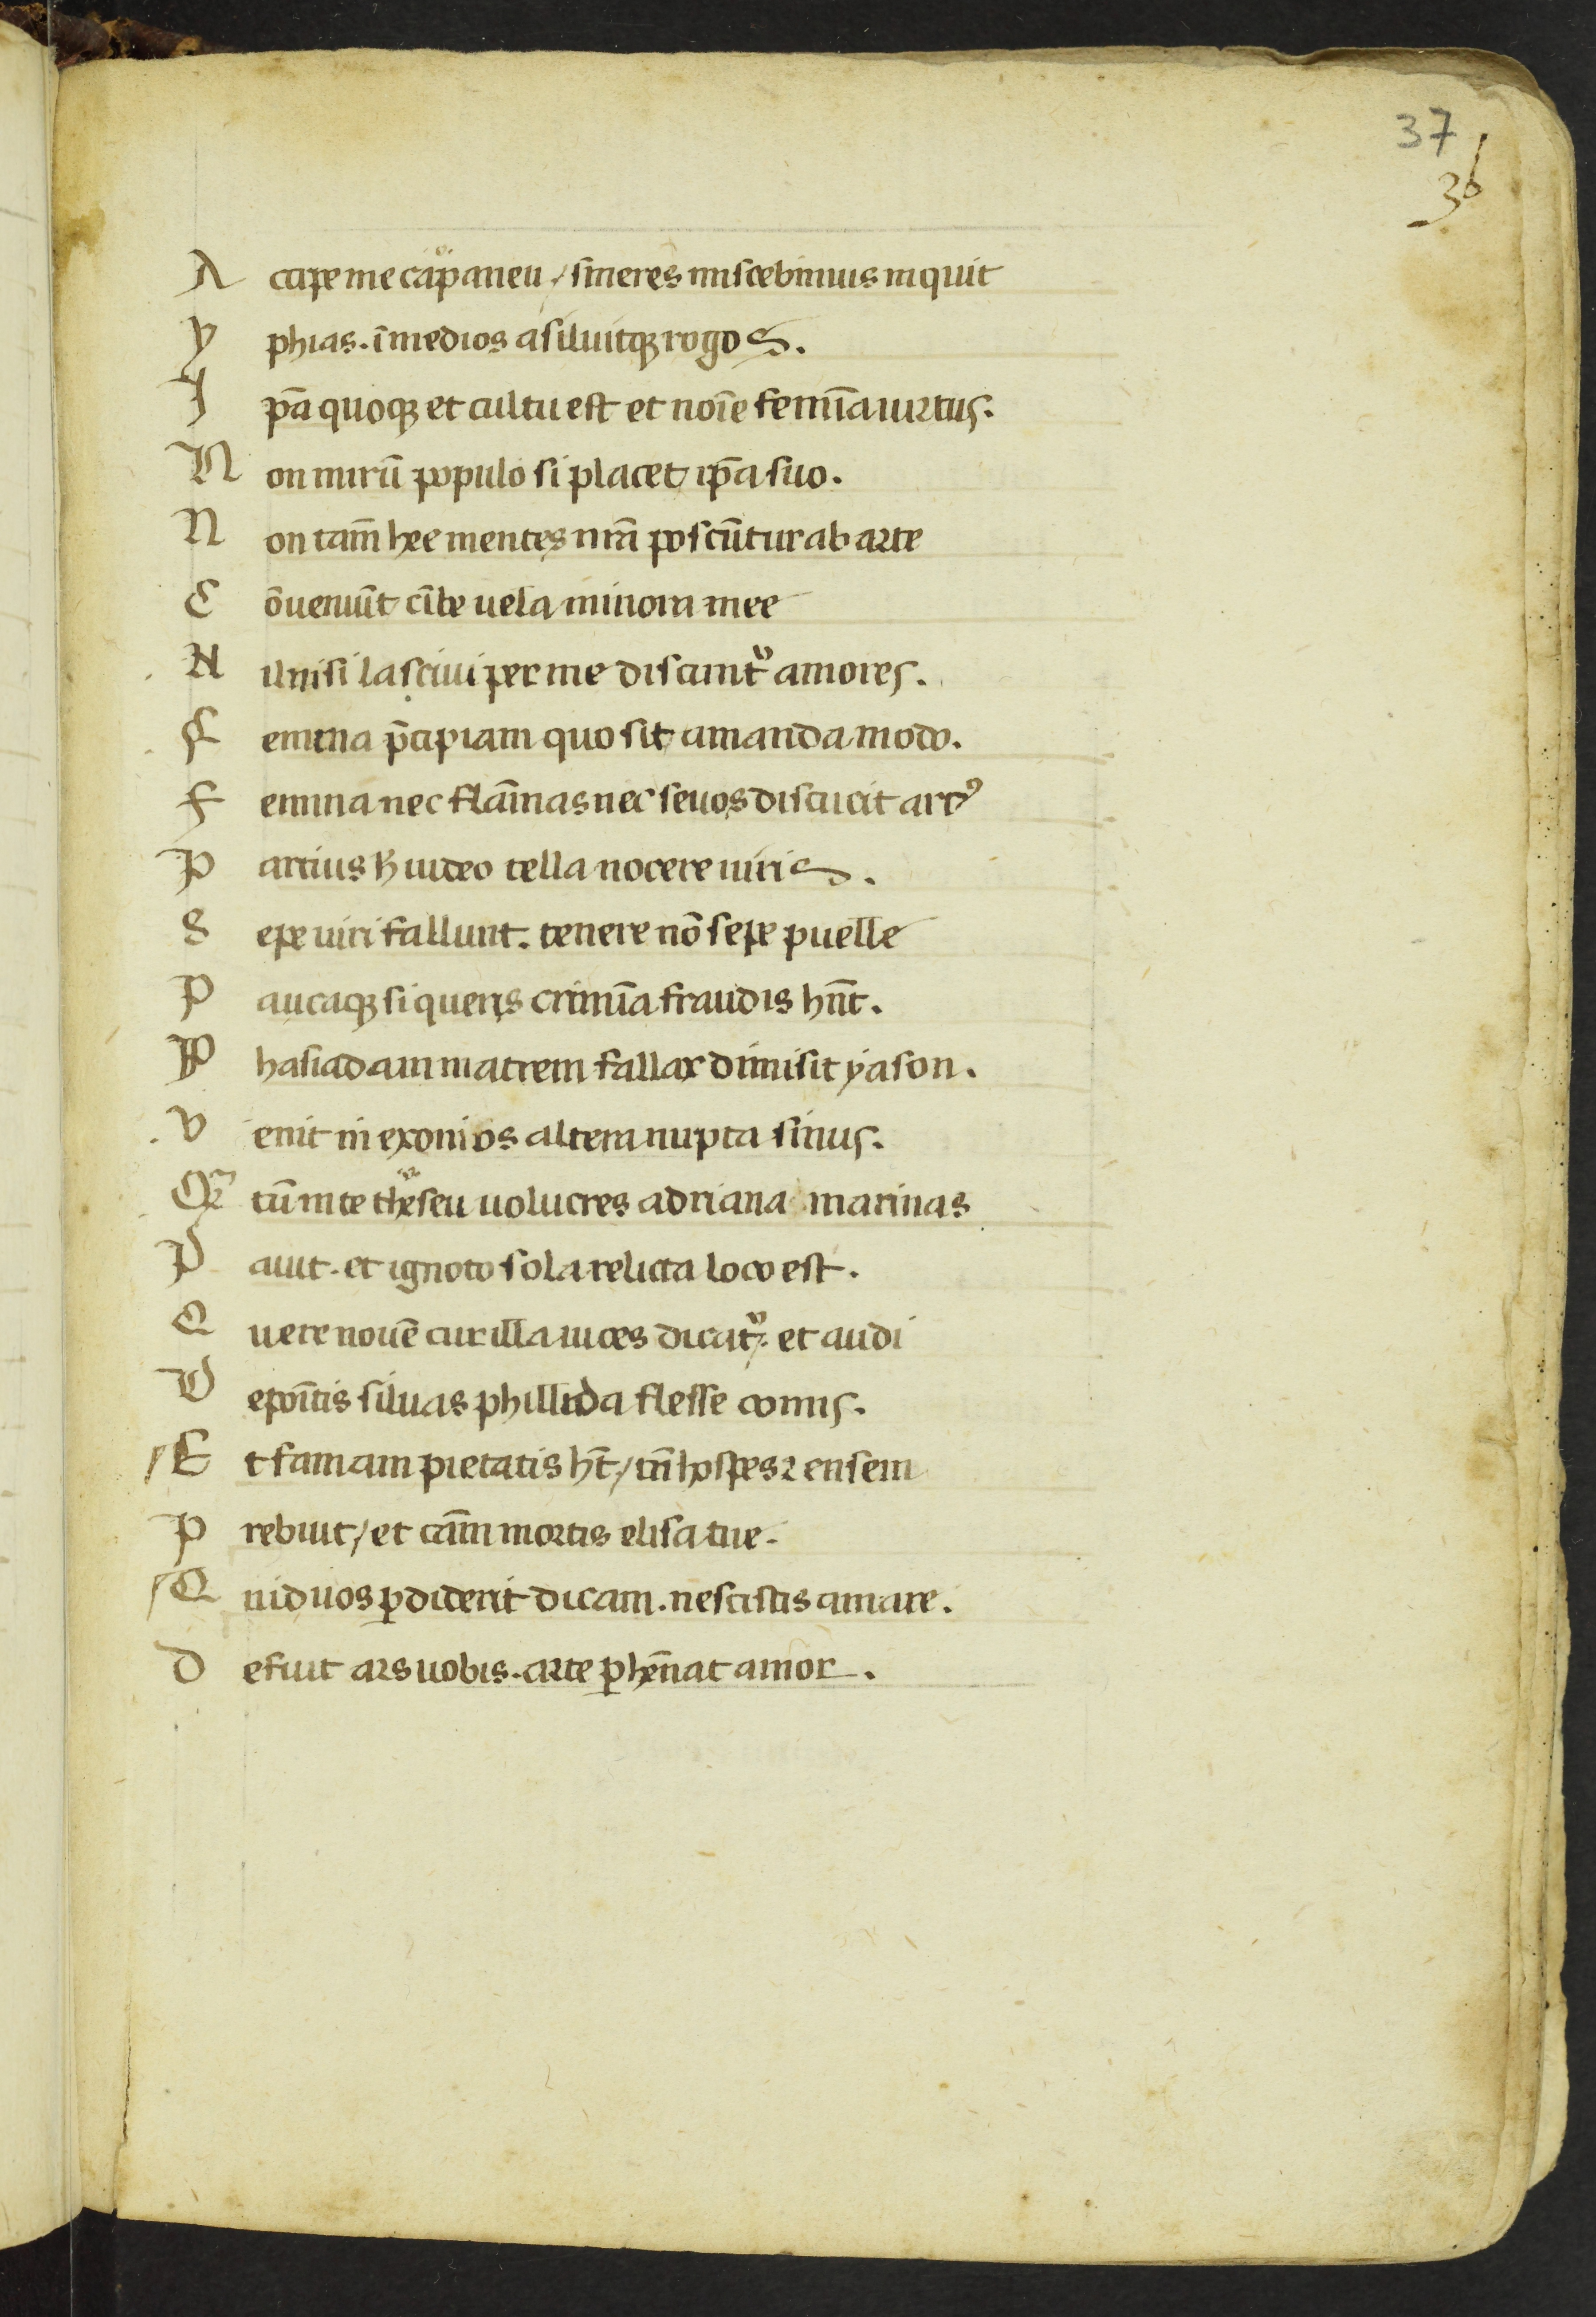 37
36
A ccipe me capaneu / sineres miscebimus inquit
Y phias. ī medios asiluitqꝫ rogos.
I pā quoqꝫ et cultu est et noīe femīa uirtus.
N on mirū populo si placet ipā suo.
N on tam̄ hee mentes nrā poscūtur ab arte
C ōueniūt cūbe uela minora mee
N il nisi lasciui per me discunt᷑ amores.
F emina p̄cipiam quo sit amanda modo.
F emina nec flām̄as nec seuos discucit arcꝰ
P arcius h̄ uideo tella nocere uiris.
S epe uiri fallunt. tenere nō sepe puelle
P aucaqꝫ si queris crimīa fraudis hn̄t.
P hasiadam matrem fallax dimisit yason.
V enit in exonios altera nupta sinus.
Qr̄ tū in te theseu uolucres adriana marinas
P auit. et ignoto sola relicta loco est.
Q uere nouē cur illa uices dicat᷑. et audi
D epoītis siluas phillida flesse comis.
E t famam pietatis ht̄ / tn̄ hospes ⁊ ensem
P rebuit / et cam̄ mortis elisa tue.
Q uid uos ꝑdiderit dicam. nescistis amare.
D efuit ars uobis. arte ꝑhēnat amor.